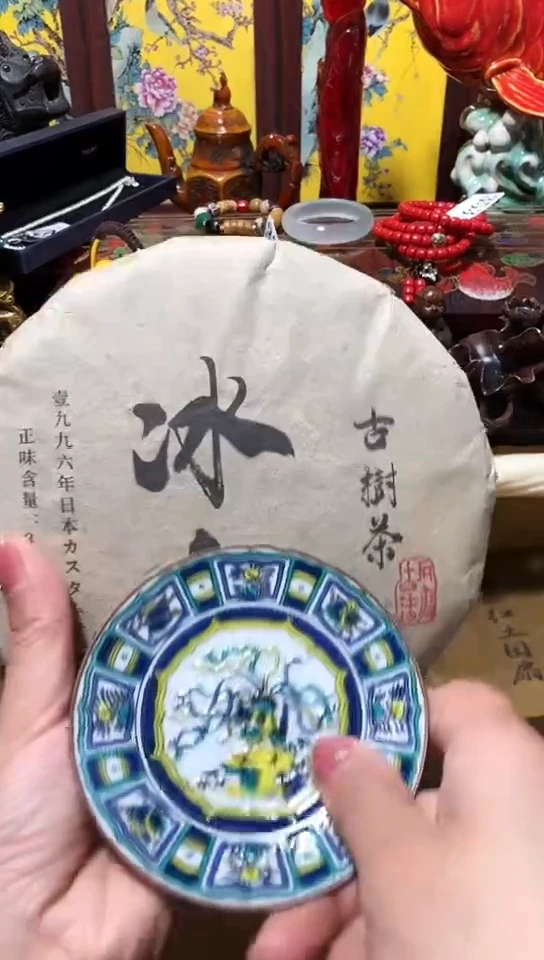 冰
古樹茶
壹九九六年日本カスタ
正味含量：3
红土国扇